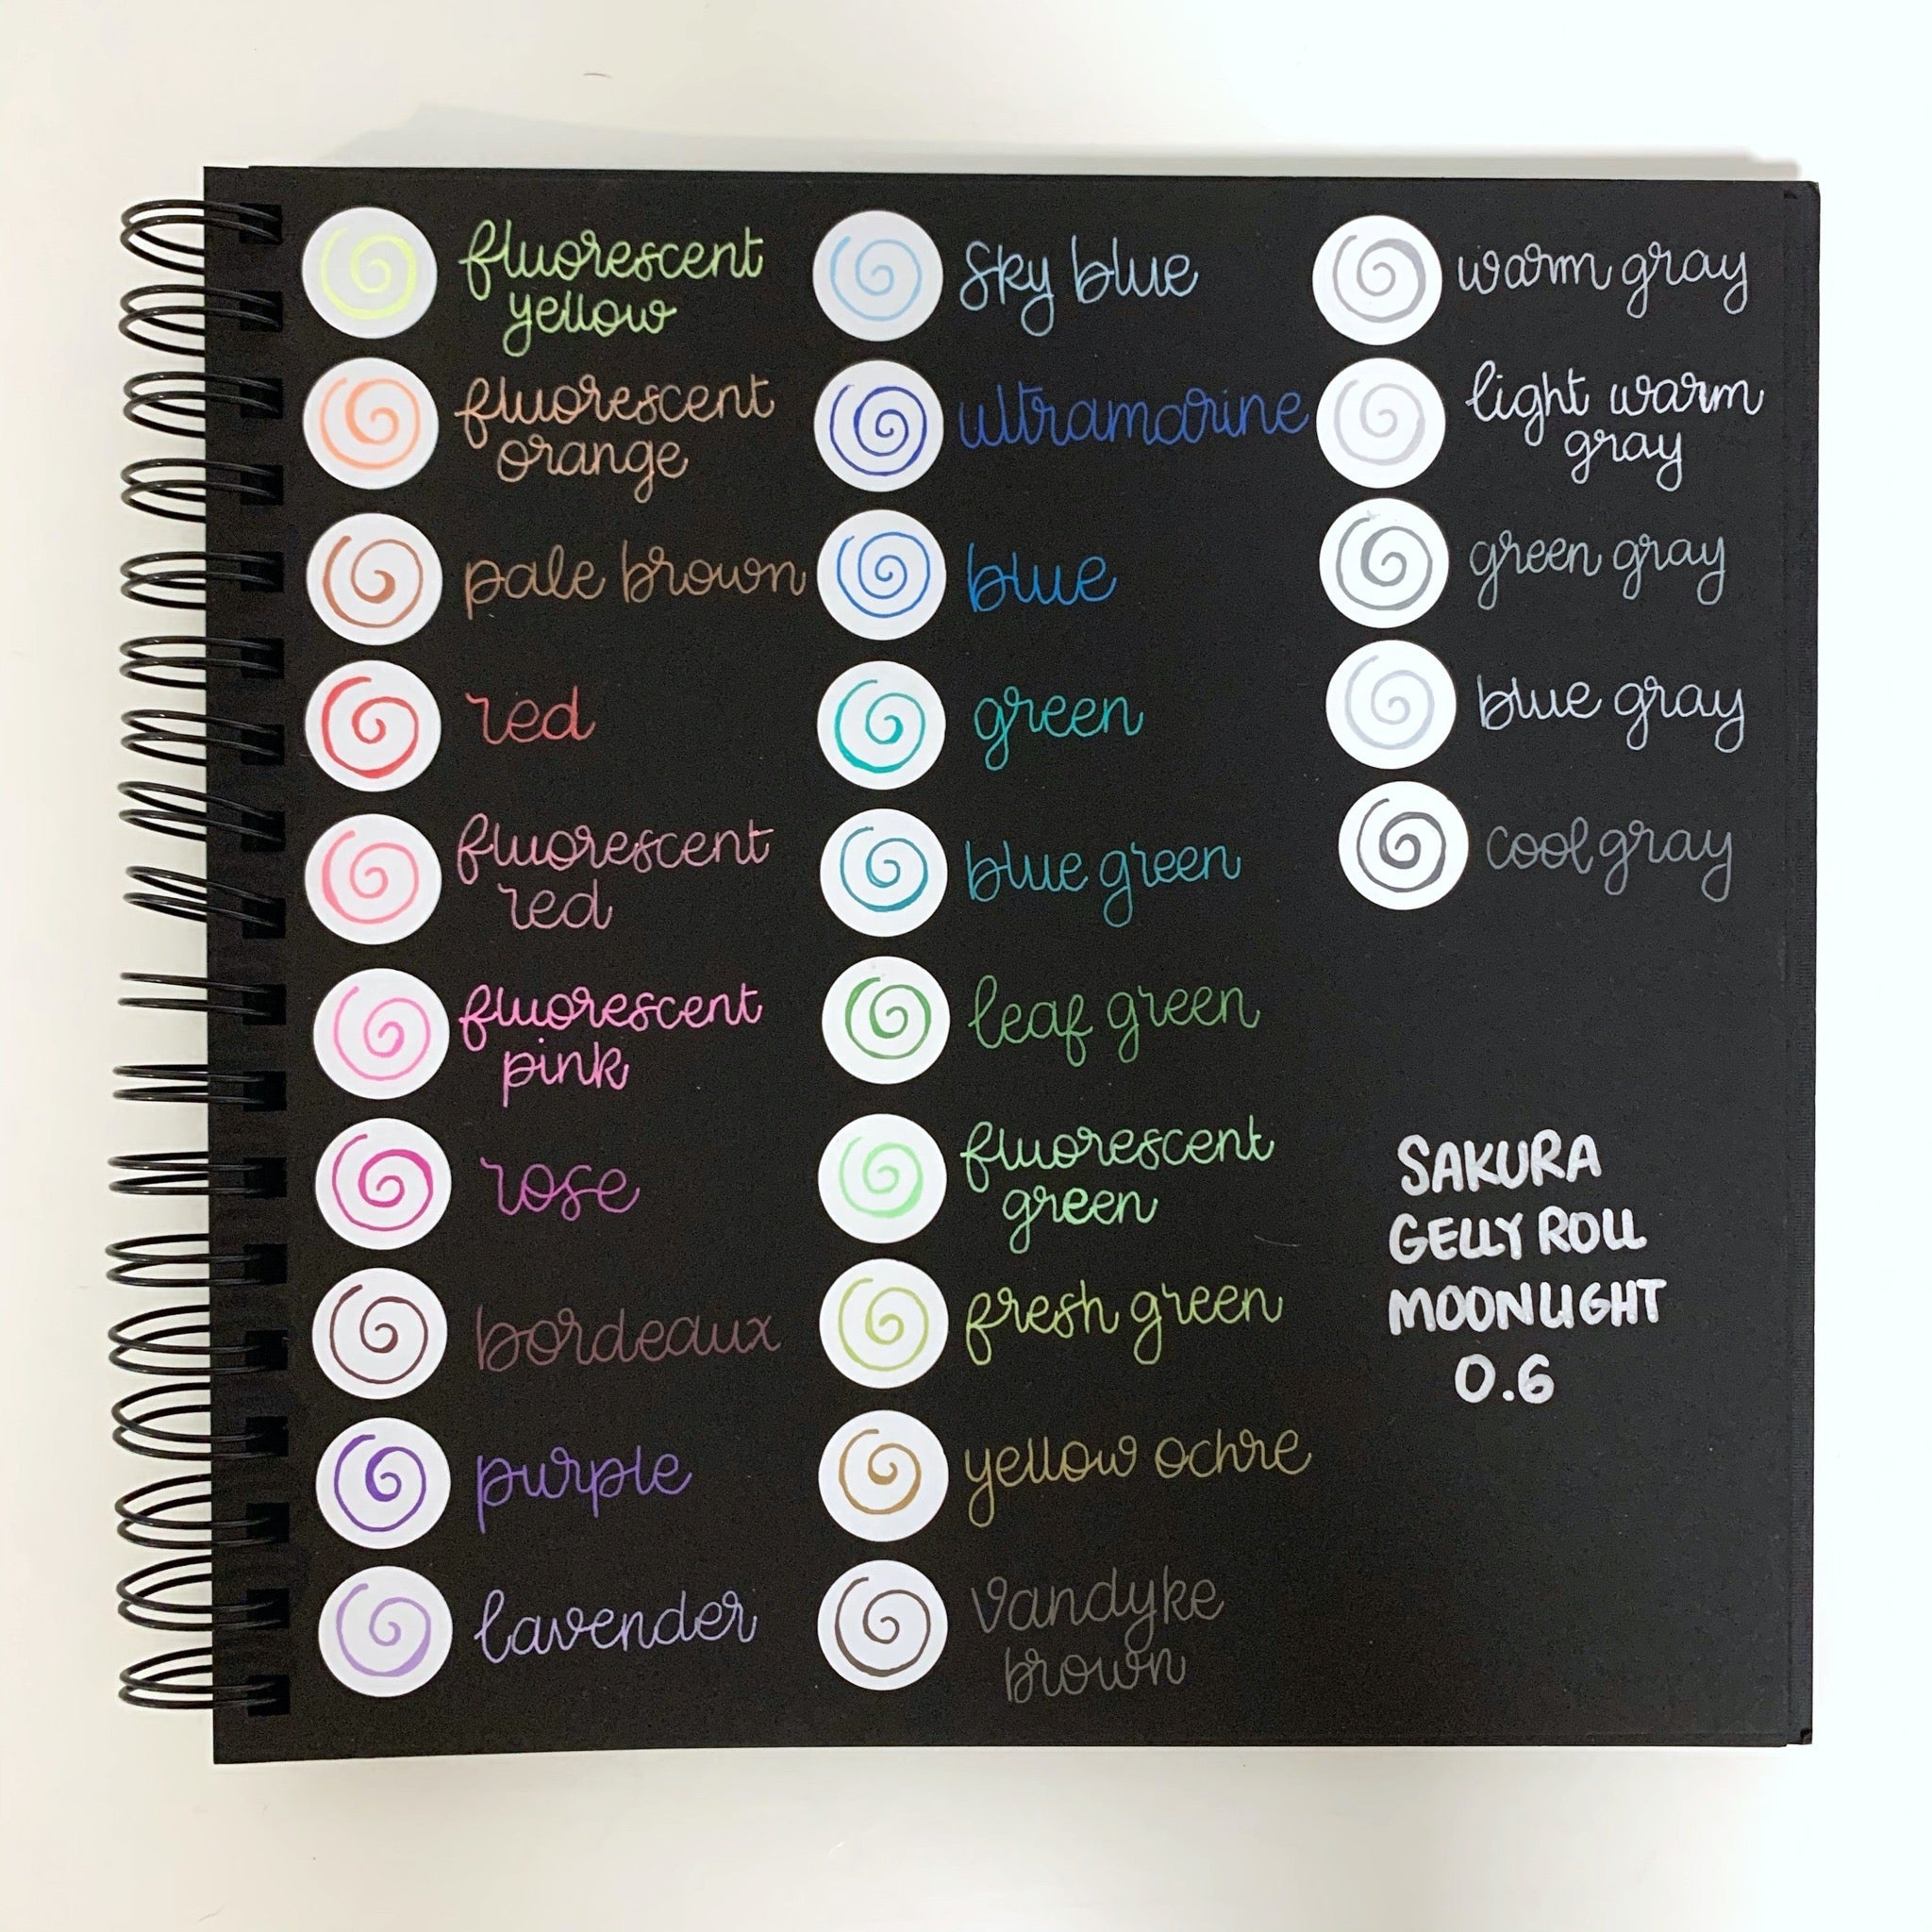 fluorescent
yellow
fluorescent
orange
pale brown
red
fluorescent
red
fluorescent
pink
rose
bordeaux
purple
lavender
sky blue
ultramarine
blue
green
blue green
leaf green
fluorescent
green
fresh green
yellow ochre
vandyke
brown
warm gray
light warm
gray
green gray
blue gray
cool gray
SAKURA
GELLY ROLL
MOONLIGHT
0.6